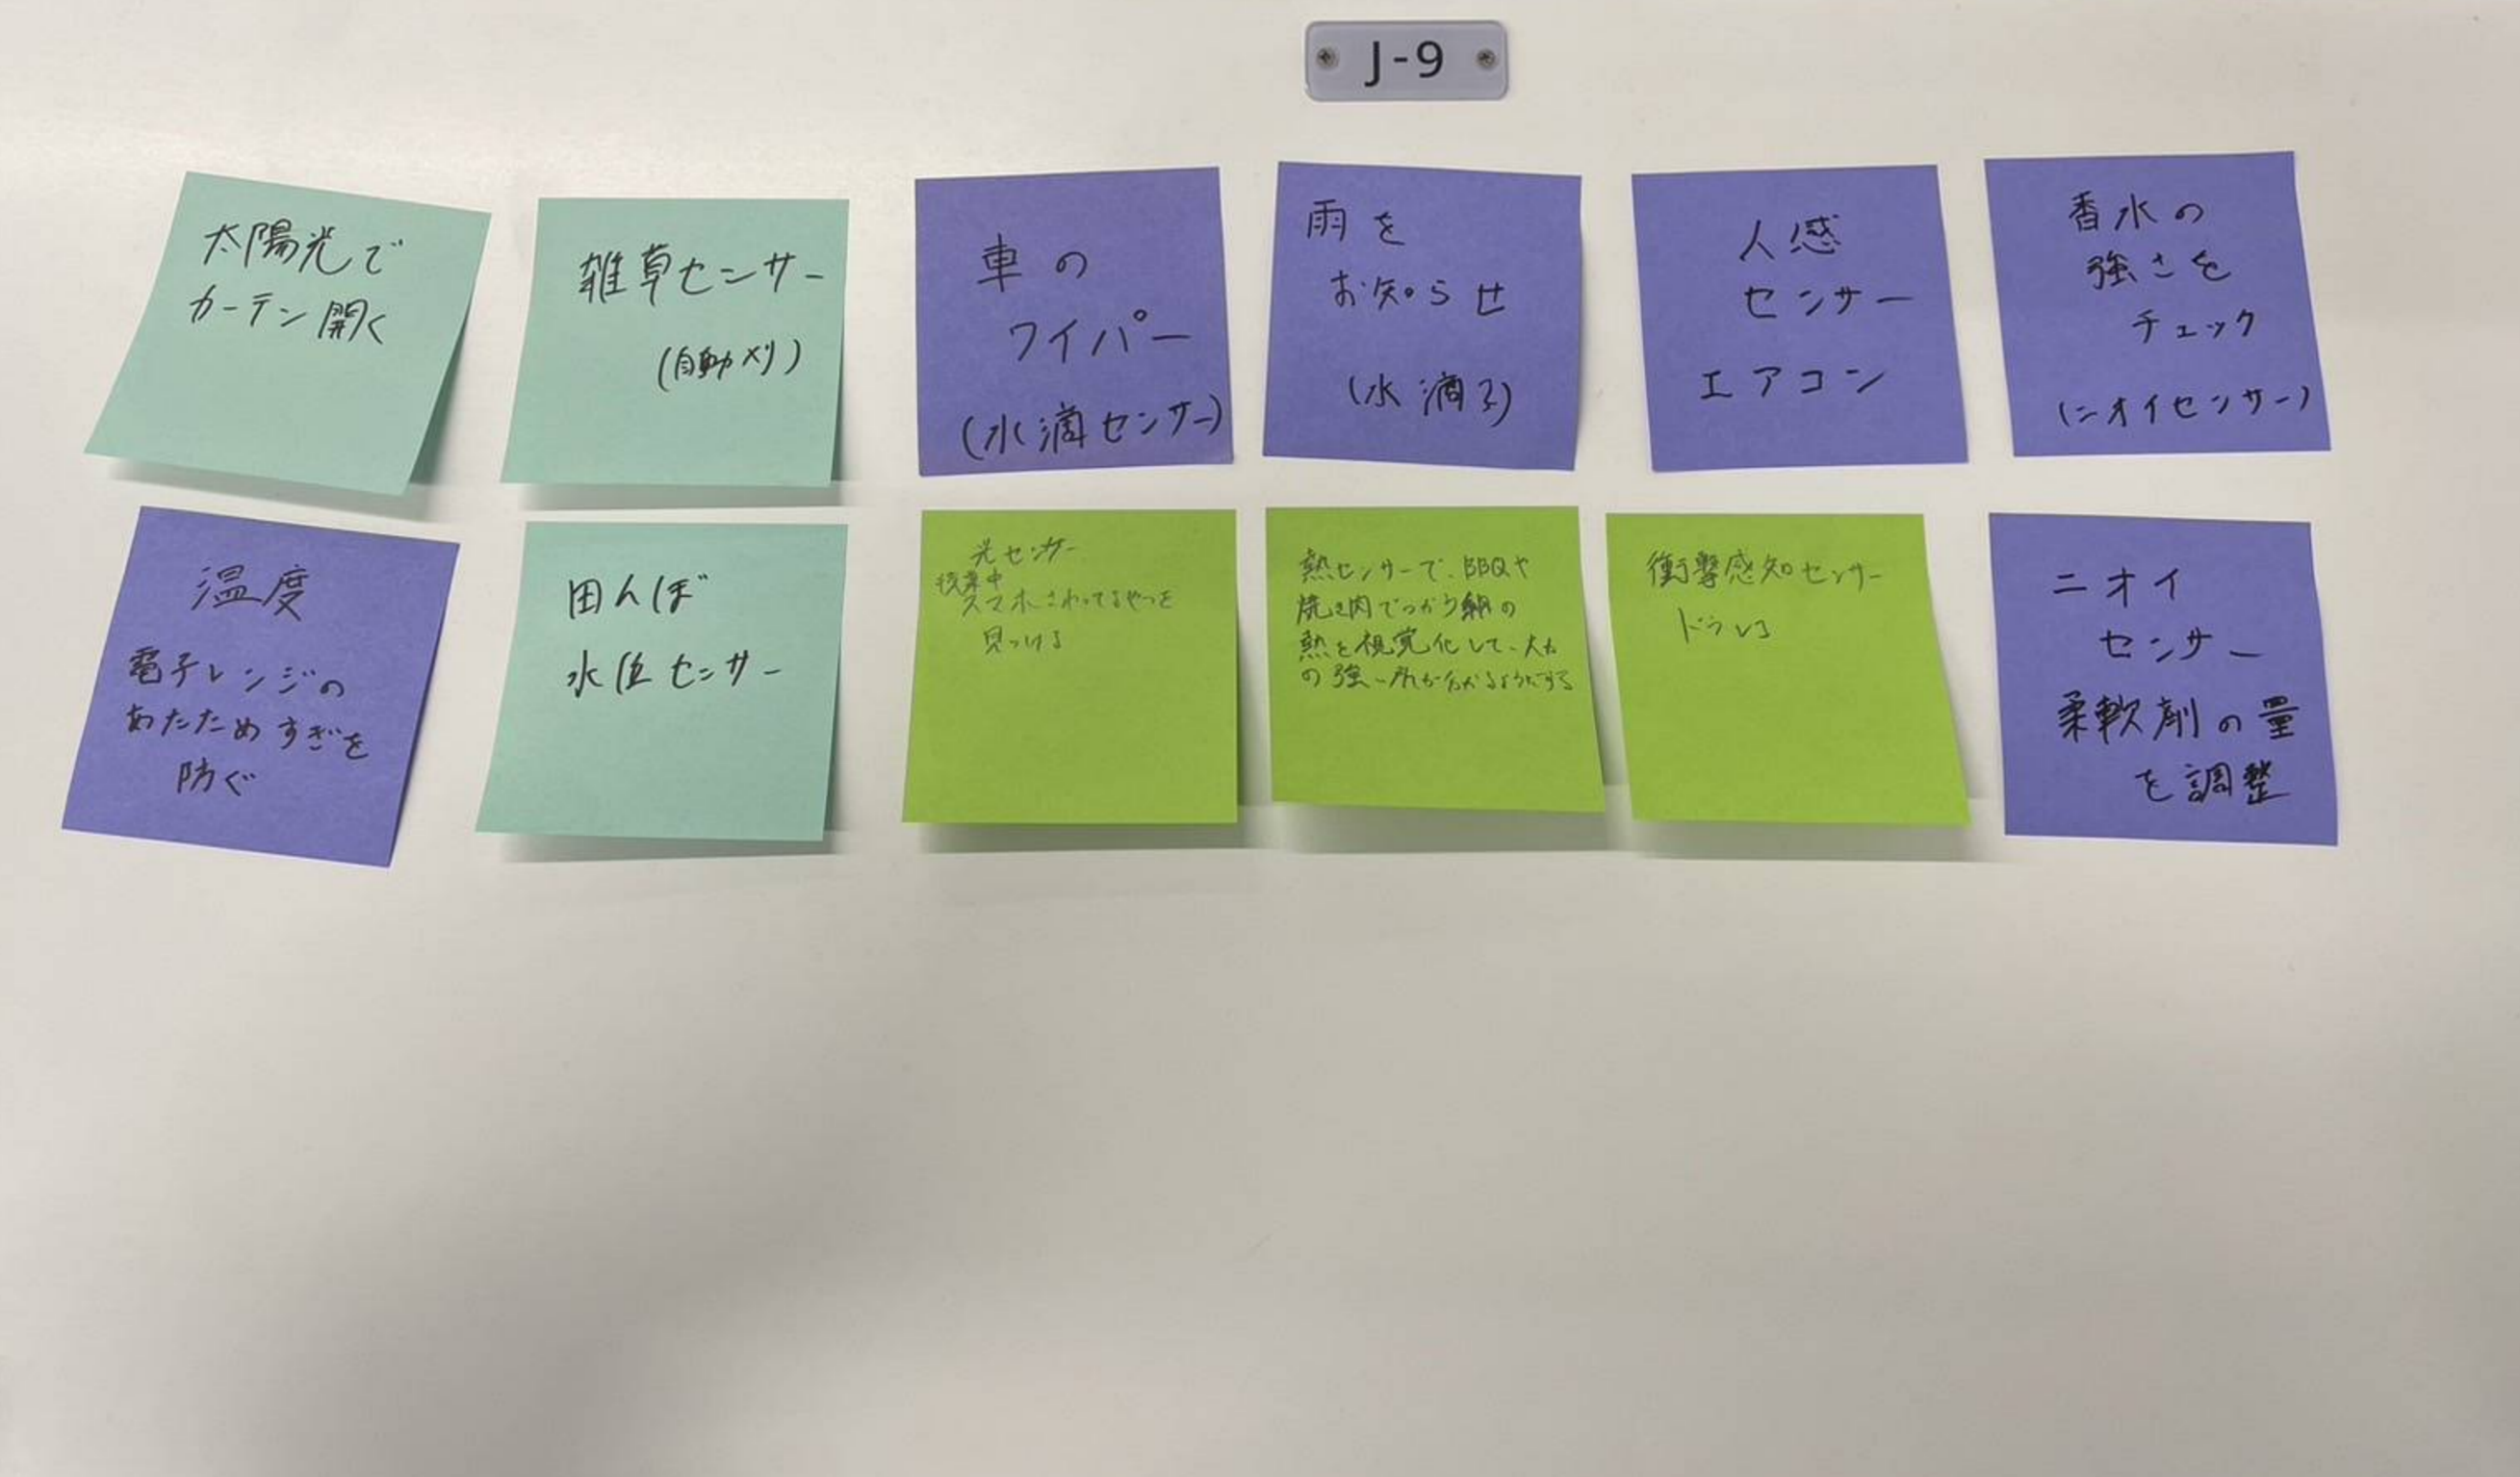 J-9
太陽光で
カーテン開く
雑草センサー
(自動刈)
車の
ワイパー
(水滴センサー)
雨を
お知らせ
(水滴)
人感
センサー
エアコン
香水の
強さを
チェック
(ニオイセンサー)
温度
電子レンジの
あたためすぎを
防ぐ
田んぼ
水位センサー
光センサー
授業中
スマホさわってるやつを
見つける
熱センサーで、BBQや
焼き肉でつかう網の
熱を視覚化して、火力
の強い所が分かるようにする
衝撃感知センサー
ドラレコ
ニオイ
センサー
柔軟剤の量
を調整